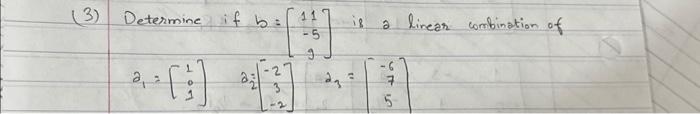 (3) Determine if b = [11 -5 9] is a linear combination of
a₁ = [1 0 1] a₂ = [-2 3 -2] a₃ = [-6 7 5]